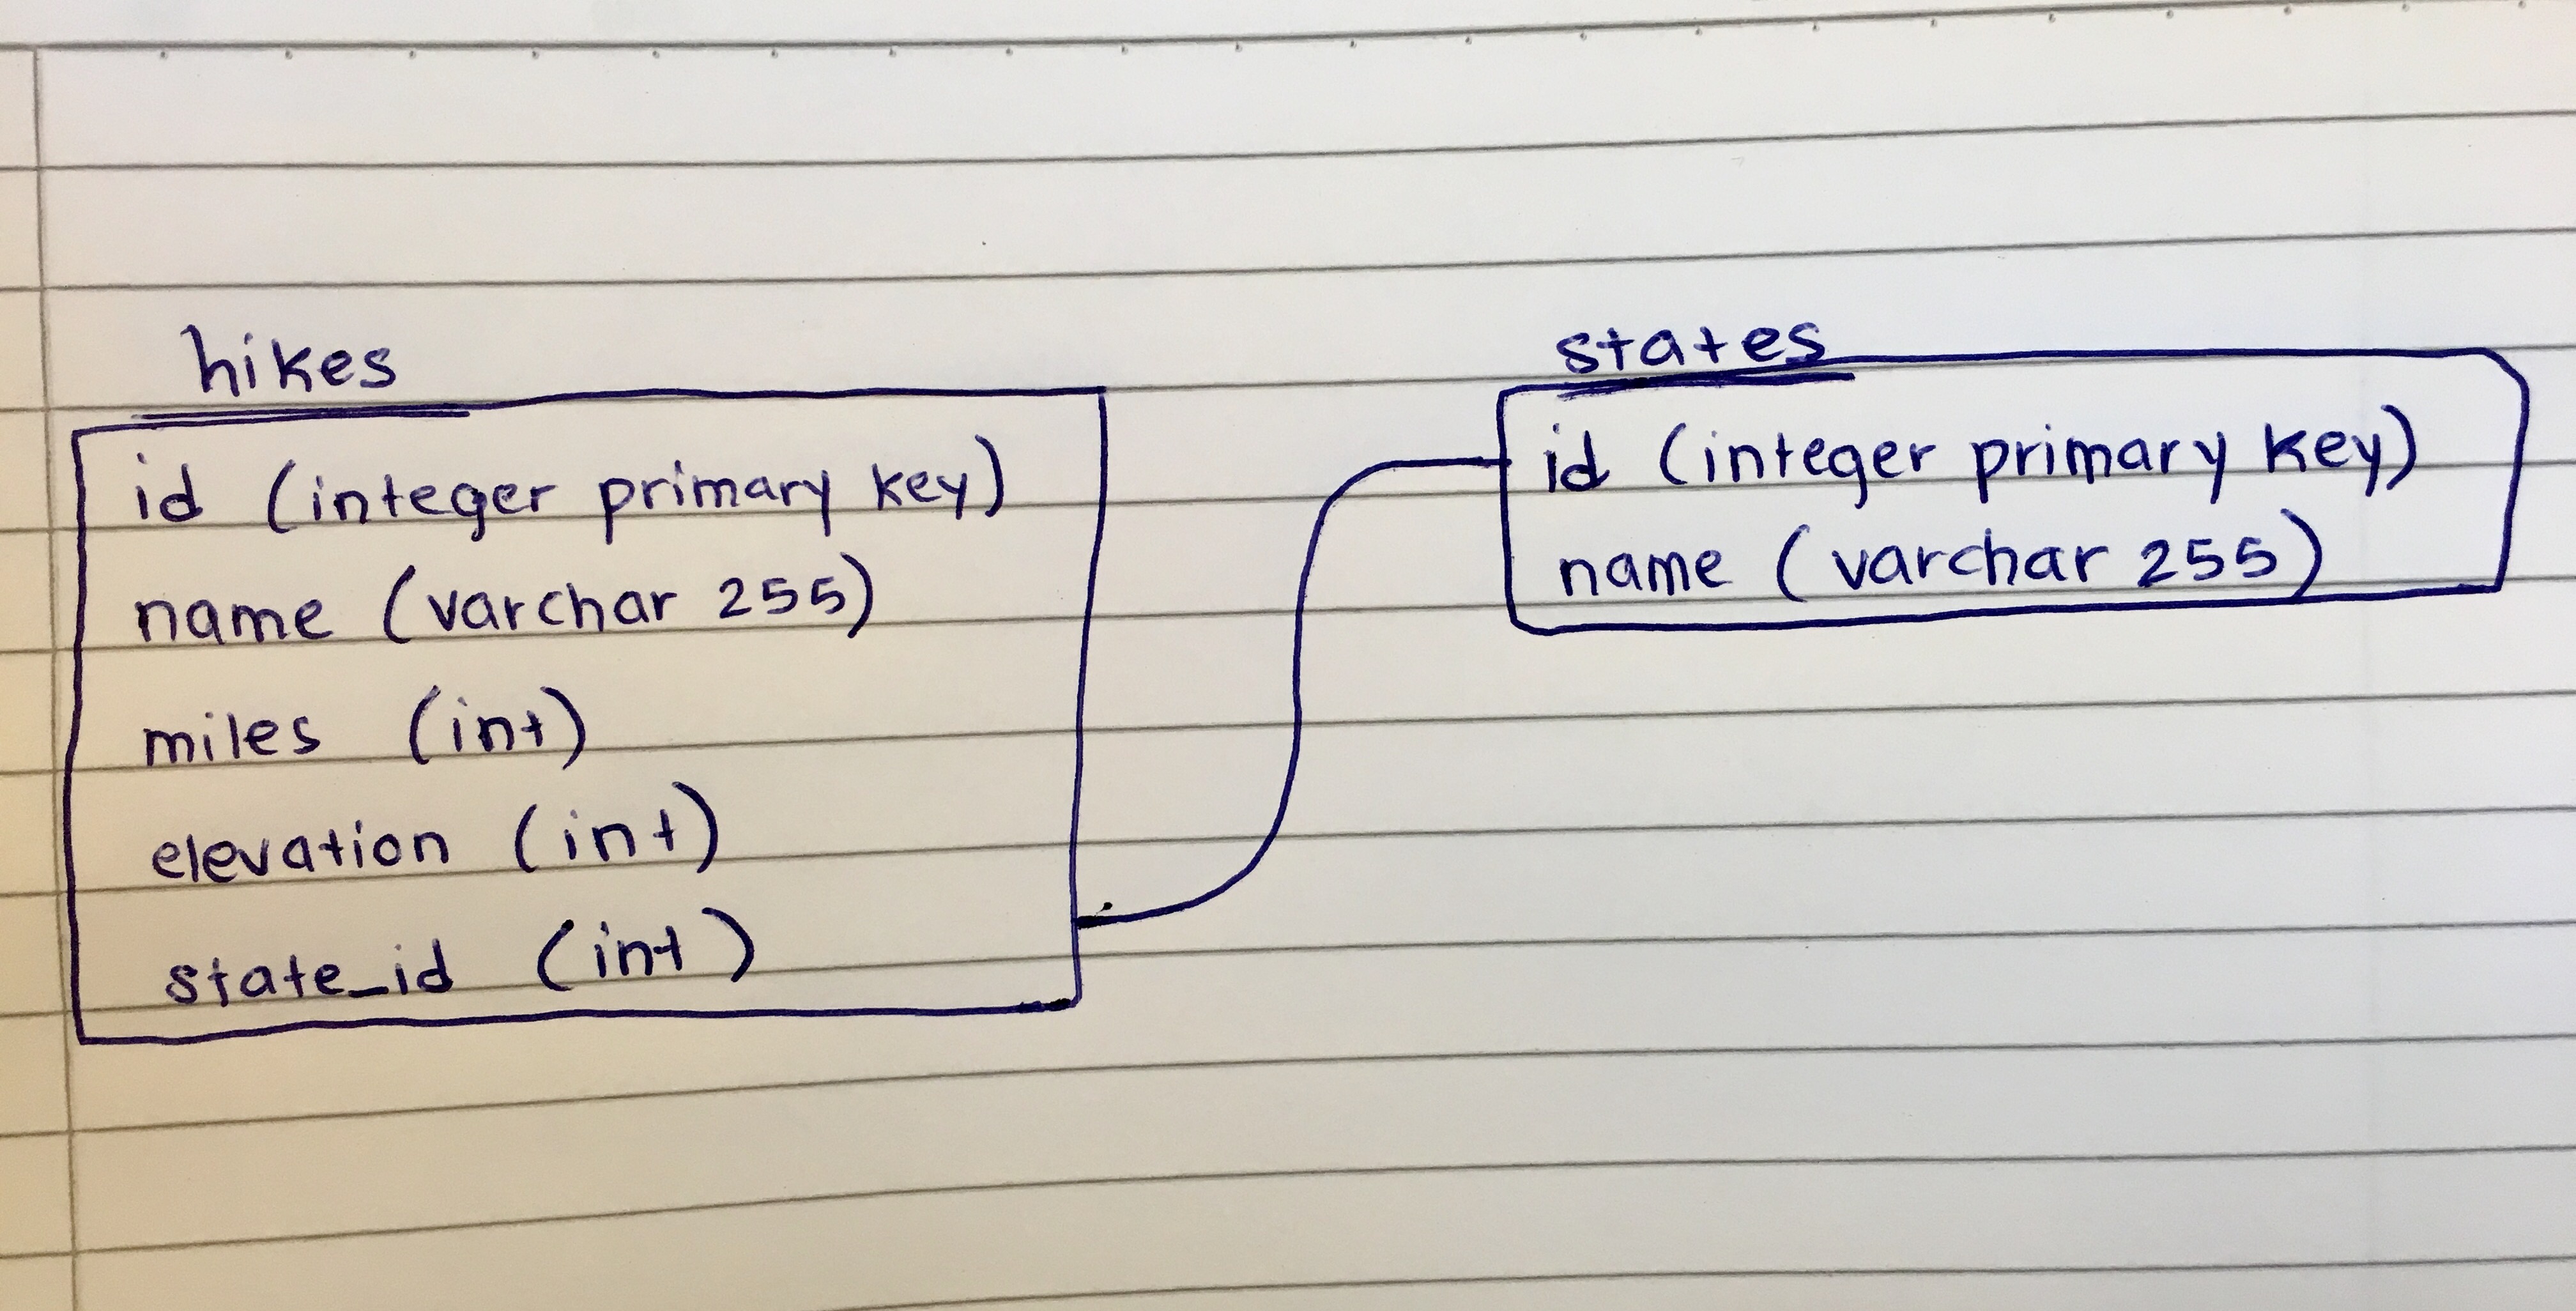 hikes
id (integer primary key)
name (varchar 255)
miles (int)
elevation (int)
state_id (int)
states
id (integer primary key)
name (varchar 255)